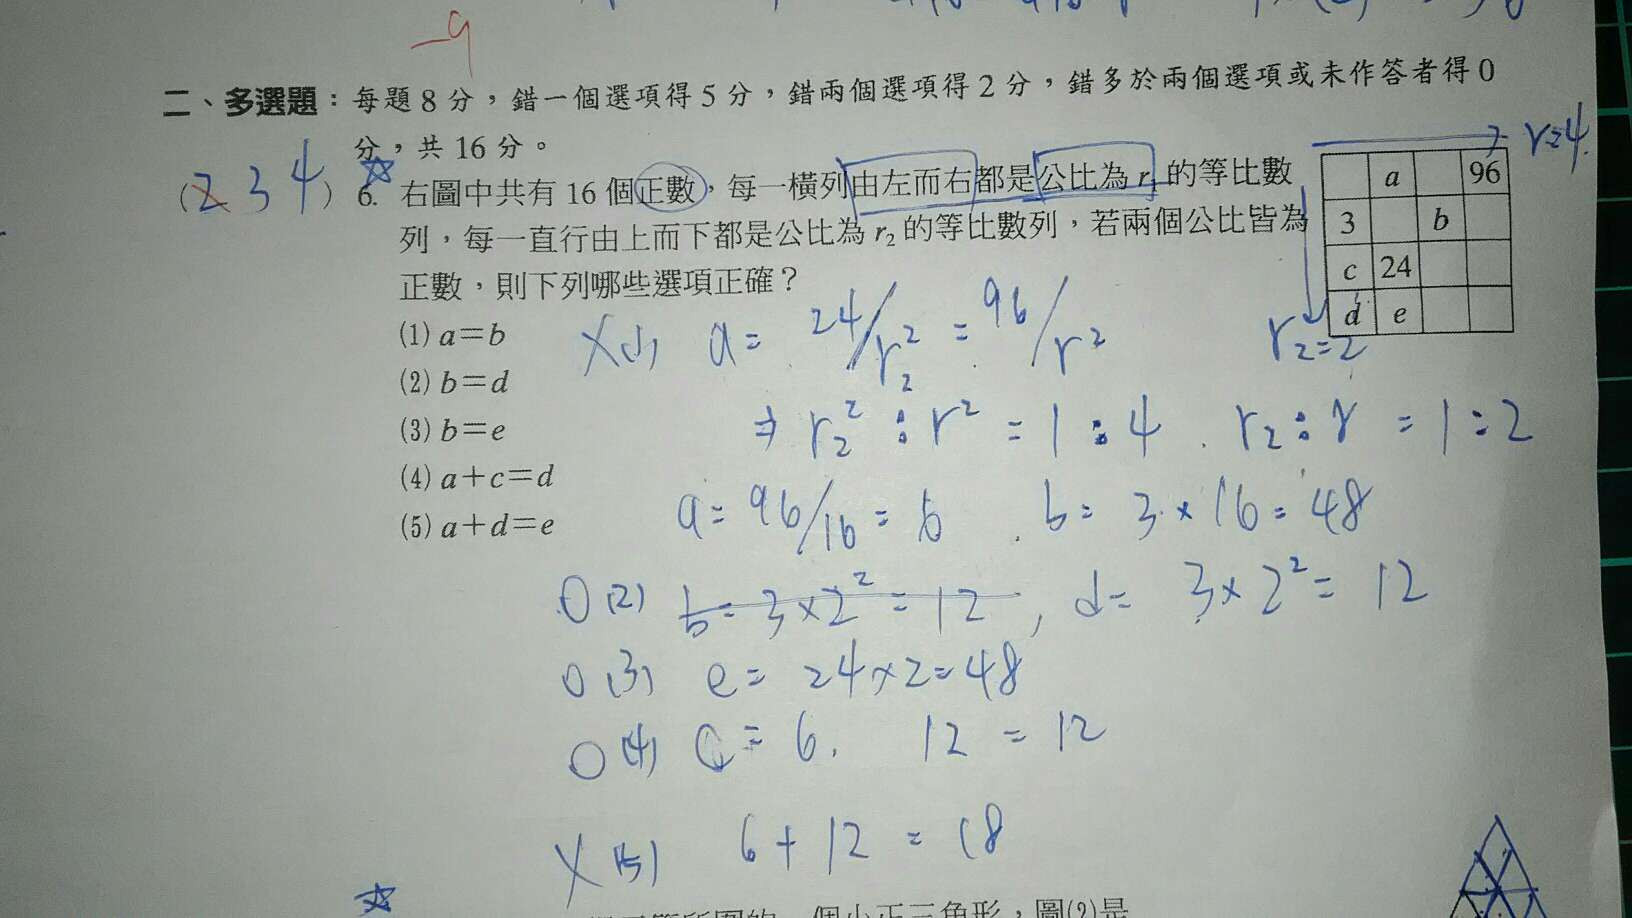 -9
二、多選題：每題 8 分，錯一個選項得 5 分，錯兩個選項得 2 分，錯多於兩個選項或未作答者得 0
分，共 16 分。
(2 3 4) 6. 右圖中共有 16 個正數，每一橫列由左而右都是公比為 r₁ 的等比數
列，每一直行由上而下都是公比為 r₂ 的等比數列，若兩個公比皆為
正數，則下列哪些選項正確？
(1) a＝b
(2) b＝d
(3) b＝e
(4) a＋c＝d
(5) a＋d＝e
r=4
a 96
3 b
c 24
d e
r₂=2
X(1) a= 24/r₂² = 96/r²
⇒ r₂² : r² = 1 : 4 . r₂ : r = 1 : 2
a= 96/16 = 6 . b= 3 × 16 = 48
O (2) b= 3×2² = 12 , d= 3×2² = 12
O (3) e= 24×2=48
O (4) C= 6. 12 = 12
X (5) 6+12 = 18
一個小正三角形，圖(2)是